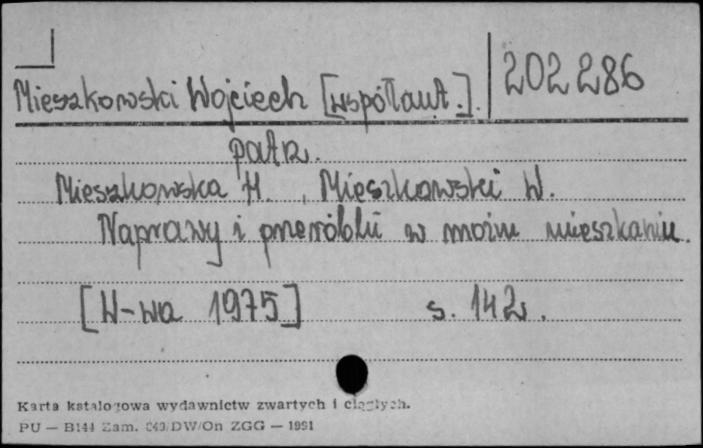 Mieszkowski Wojciech [współaut.]. 202286
patrz.
Mieszkowska H., Mieszkowski W.
Naprawy i przeróbki w moim mieszkaniu.
[W-wa 1975] s. 142.
Karta katalogowa wydawnictw zwartych i ciągłych.
PU — B144 Zam. 043/DW/On ZGG — 1991